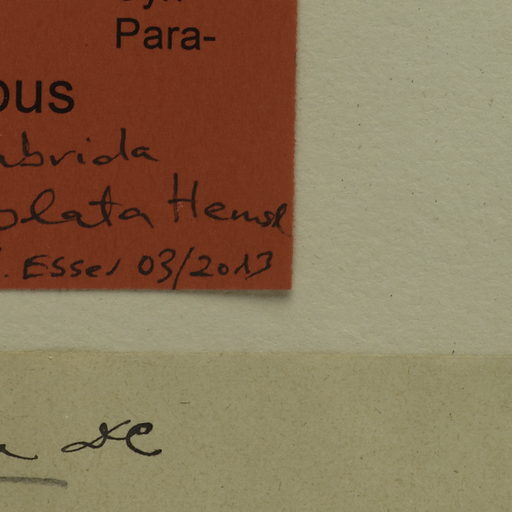 Para-
ous
abrida
olata Hemsl
. Esser 03/2013
a DC